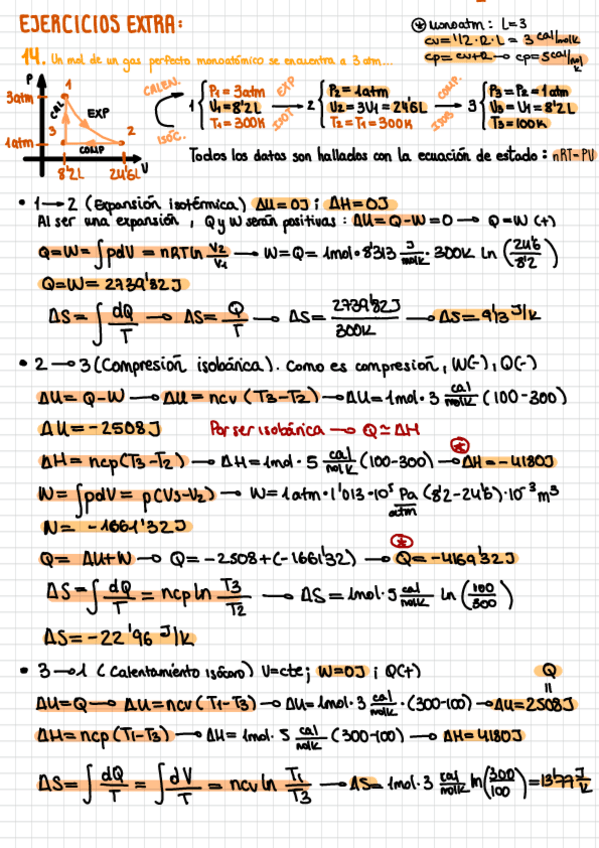 EJERCICIOS EXTRA:
⊛ monoatm: L=3
cv=1/2·R·L = 3 cal/molK
cp=cv+R → cp=5cal/molK
14. Un mol de un gas perfecto monoatómico se encuentra a 3 atm...
P 3atm 1atm 1 2 3 CAL EXP COMP 8'2L 24'6L V
CALEN. ISOC.
1 { P1 = 3atm V1 = 8'2L T1 = 300K
EXP ISOT
2 { P2 = 1atm V2 = 3V1 = 24'6L T2 = T1 = 300K
COMP. ISOB
3 { P3 = P2 = 1atm V3 = V1 = 8'2L T3 = 100K
Todos los datos son hallados con la ecuación de estado: nRT=PV
• 1→2 (Expansión isotérmica) ΔU=0J ; ΔH=0J
Al ser una expansión, Q y W serán positivas: ΔU=Q-W=0 → Q=W (+)
Q=W=∫pdV = nRTln V2/V1 → W=Q= 1mol·8'313 J/molK · 300K ln (24'6/8'2)
Q=W= 2739'82J
ΔS=∫dQ/T → ΔS= Q/T → ΔS= 2739'82J/300K → ΔS= 9'13 J/K
• 2→3 (Compresión isobárica). Como es compresión, W(-), Q(-)
ΔU= Q-W → ΔU = ncv (T3-T2) → ΔU= 1mol·3 cal/molK (100-300)
ΔU=-2508J Por ser isobárica → Q≃ΔH
ΔH= ncp(T3-T2) → ΔH= 1mol·5 cal/molK (100-300) → ΔH=-4180J ⊛
W=∫pdV = p(V3-V2) → W= 1atm·1'013·10⁵ Pa/atm (8'2-24'6)·10⁻³m³
W= -1661'32J
Q= ΔU+W → Q= -2508+(-1661'32) → Q=-4169'32J ⊛
ΔS=∫dQ/T = ncpln T3/T2 → ΔS= 1mol·5 cal/molK ln (100/300)
ΔS=-22'96 J/K
• 3→1 (Calentamiento isócoro) V=cte; W=0J ; Q(+) Q
ΔU=Q → ΔU=ncv(T1-T3) → ΔU= 1mol·3 cal/molK ·(300-100) → ΔU=2508J
ΔH=ncp(T1-T3) → ΔH= 1mol. 5 cal/molK (300-100) → ΔH=4180J
ΔS=∫dQ/T = ∫dV/T = ncvln T1/T3 → ΔS= 1mol·3 cal/molK ln(300/100)=13'77 J/K